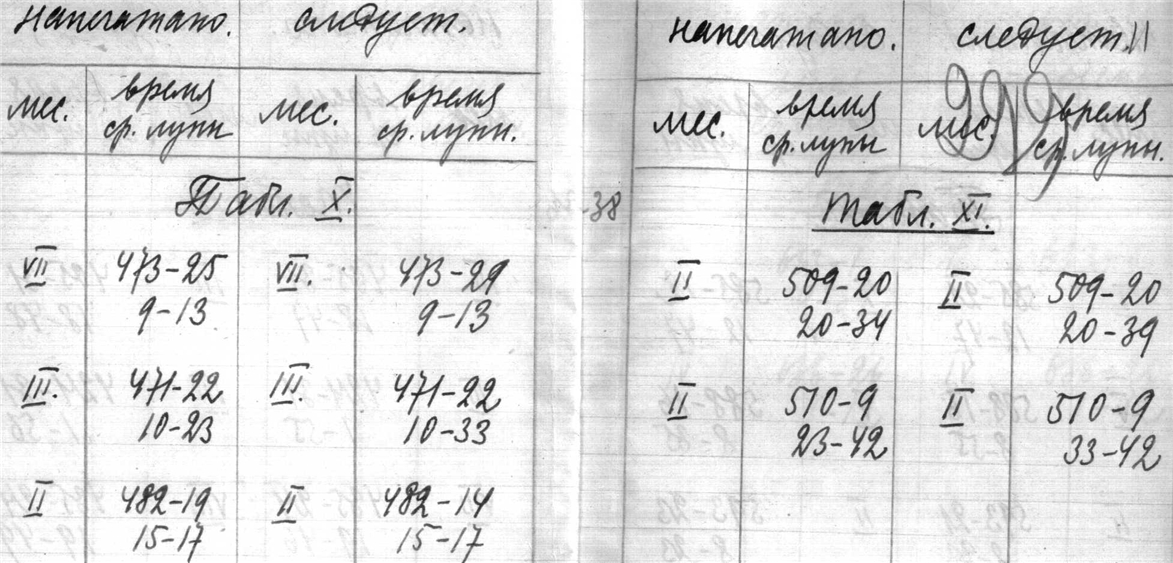 напечатано. следует.
мес. время мес. время
ср. лупы ср. лупы.
Табл. X.
VII 473-25 VII. 473-29
9-13 9-13
III. 471-22 III. 471-22
10-23 10-33
II 482-19 II 482-14
15-17 15-17
-38
напечатано. следует.
мес. время мес. время
ср. лупы ср. лупы.
Табл. XI.
II 509-20 II 509-20
20-34 20-39
II 510-9 II 510-9
23-42 33-42